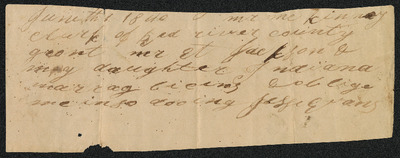 June th 1 1840 mr mc kinney
clurk of Red river county
grant mr Jackson &
my daughter Indiana
marrag licens & oblige
me in so dooing Jesse